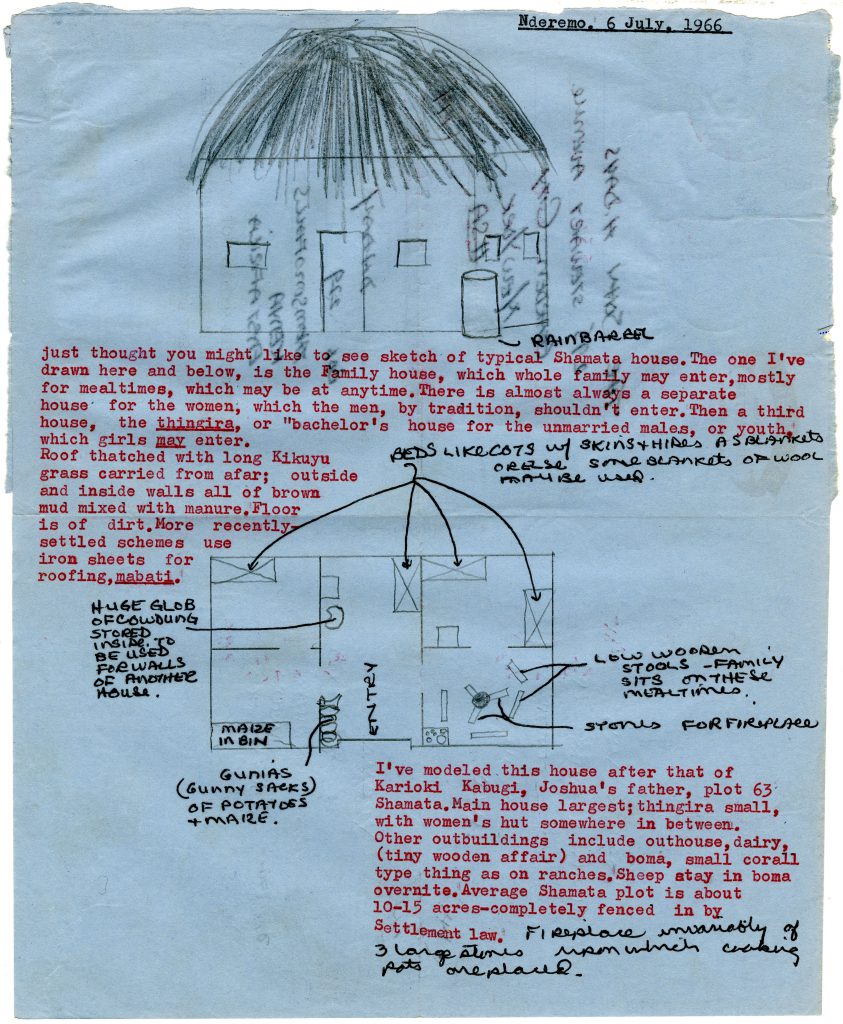 Nderemo. 6 July, 1966
RAINBARREL
just thought you might like to see sketch of typical Shamata house.The one I've
drawn here and below, is the Family house, which whole family may enter,mostly
for mealtimes, which may be at anytime.There is almost always a separate
house for the women, which the men, by tradition, shouldn't enter.Then a third
house, the thingira, or "bachelor's house for the unmarried males, or youth,
which girls may enter.
BEDS LIKE COTS w/ SKINS + HIDES AS BLANKETS
OR ELSE SOME BLANKETS OF WOOL
MAY BE USED.
Roof thatched with long Kikuyu
grass carried from afar; outside
and inside walls all of brown
mud mixed with manure.Floor
is of dirt.More recently-
settled schemes use
iron sheets for
roofing,mabati.
HUGE GLOB
OF COWDUNG
STORED
INSIDE. TO
BE USED
FOR WALLS
OF ANOTHER
HOUSE.
LOW WOODEN
STOOLS - FAMILY
SITS ON THESE
MEALTIMES.
ENTRY
STONES FOR FIREPLACE
MAIZE
IN BIN
GUNIAS
(GUNNY SACKS)
OF POTATOES
+ MAIZE.
I've modeled this house after that of
Karioki Kabugi, Joshua's father, plot 63
Shamata.Main house largest;thingira small,
with women's hut somewhere in between.
Other outbuildings include outhouse,dairy,
(tiny wooden affair) and boma, small corall
type thing as on ranches.Sheep stay in boma
overnite.Average Shamata plot is about
10-15 acres-completely fenced in by
Settlement law. FIREPLACE invariably of
3 large stones upon which cooking
pots are placed.